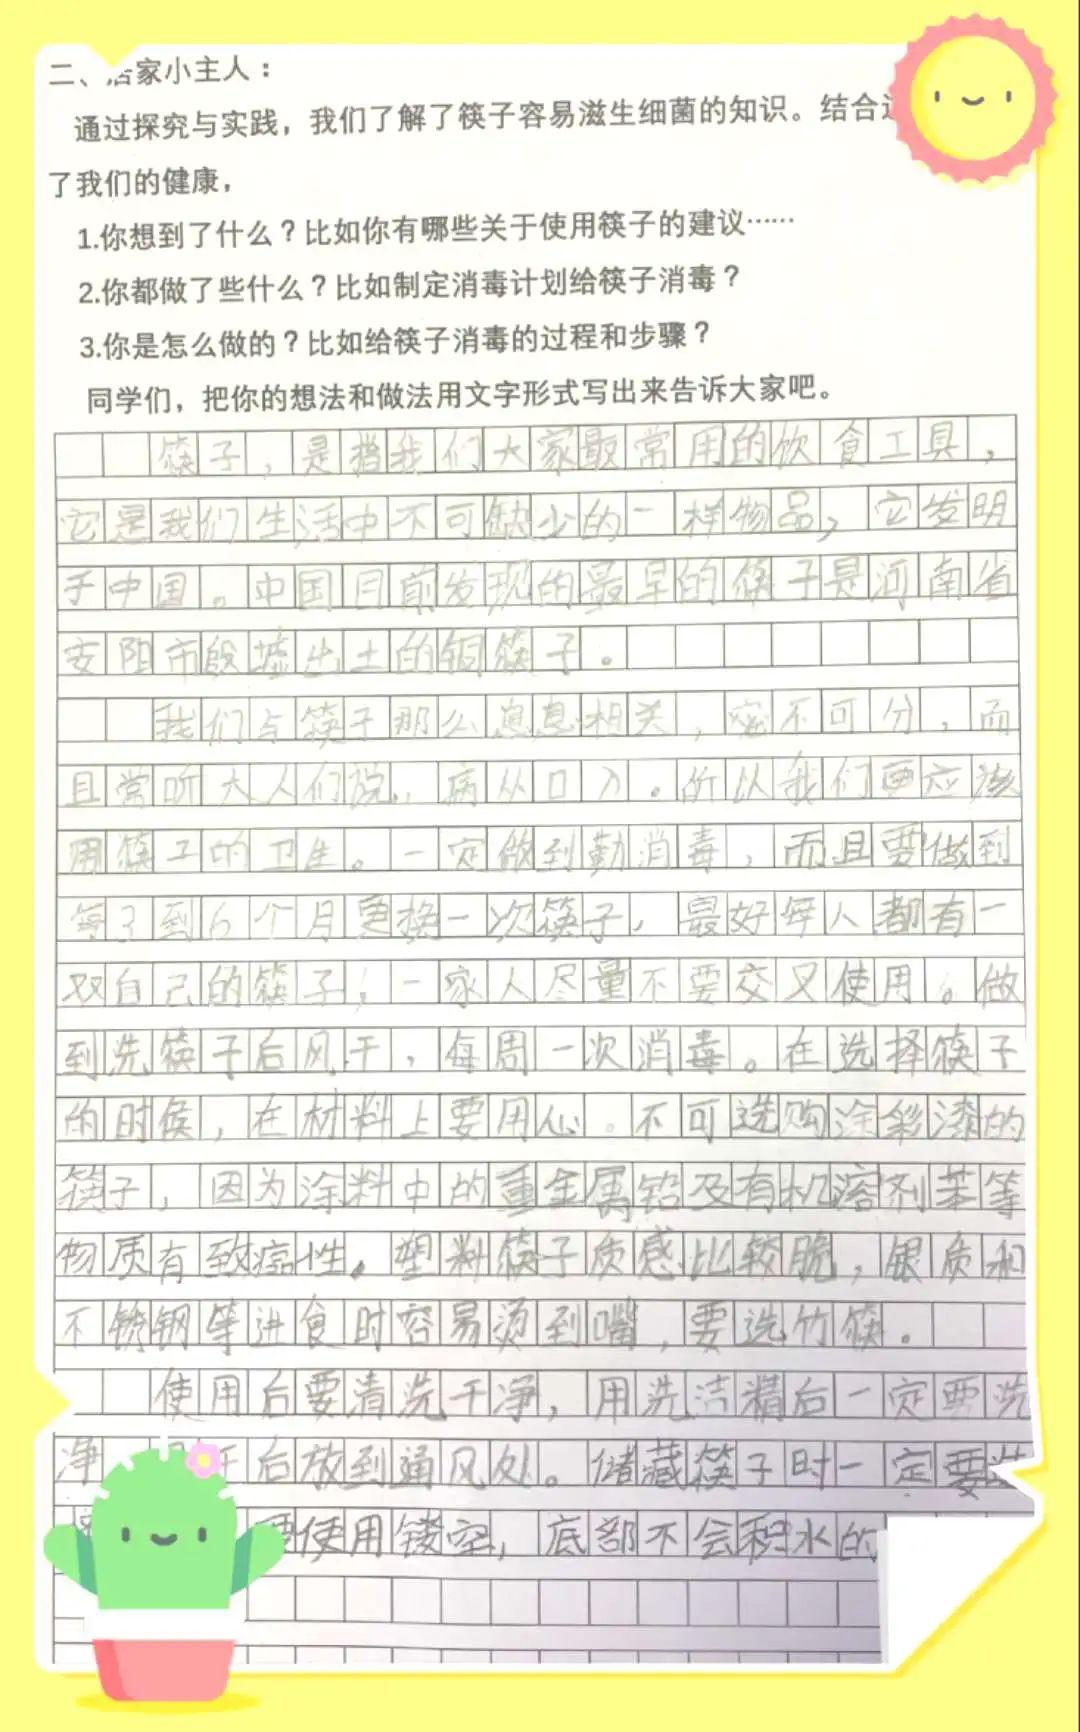 二、居家小主人：
通过探究与实践，我们了解了筷子容易滋生细菌的知识。结合
了我们的健康，
1.你想到了什么？比如你有哪些关于使用筷子的建议……
2.你都做了些什么？比如制定消毒计划给筷子消毒？
3.你是怎么做的？比如给筷子消毒的过程和步骤？
同学们，把你的想法和做法用文字形式写出来告诉大家吧。
筷子，是我们大家最常用的饮食工具，
它是我们生活中不可缺少的一样物品，它发明
于中国。中国目前发现的最早的筷子是河南省
安阳市殷墟出土的铜筷子。
我们与筷子那么息息相关，密不可分，而
且常听大人们说，病从口入。所以我们更应该
用筷子的卫生。一定做到勤消毒，而且要做到
每3到6个月更换一次筷子，最好每人都有一
双自己的筷子，一家人尽量不要交叉使用。做
到洗筷子后风干，每周一次消毒。在选择筷子
的时候，在材料上要用心。不可选购涂彩漆的
筷子，因为涂料中的重金属铅及有机溶剂苯等
物质有致癌性。塑料筷子质感比较脆，银质和
不锈钢等进食时容易烫到嘴，要选竹筷。
使用后要清洗干净，用洗洁精后一定要洗
净 后放到通风处。储藏筷子时一定要
使用镂空，底部不会积水的